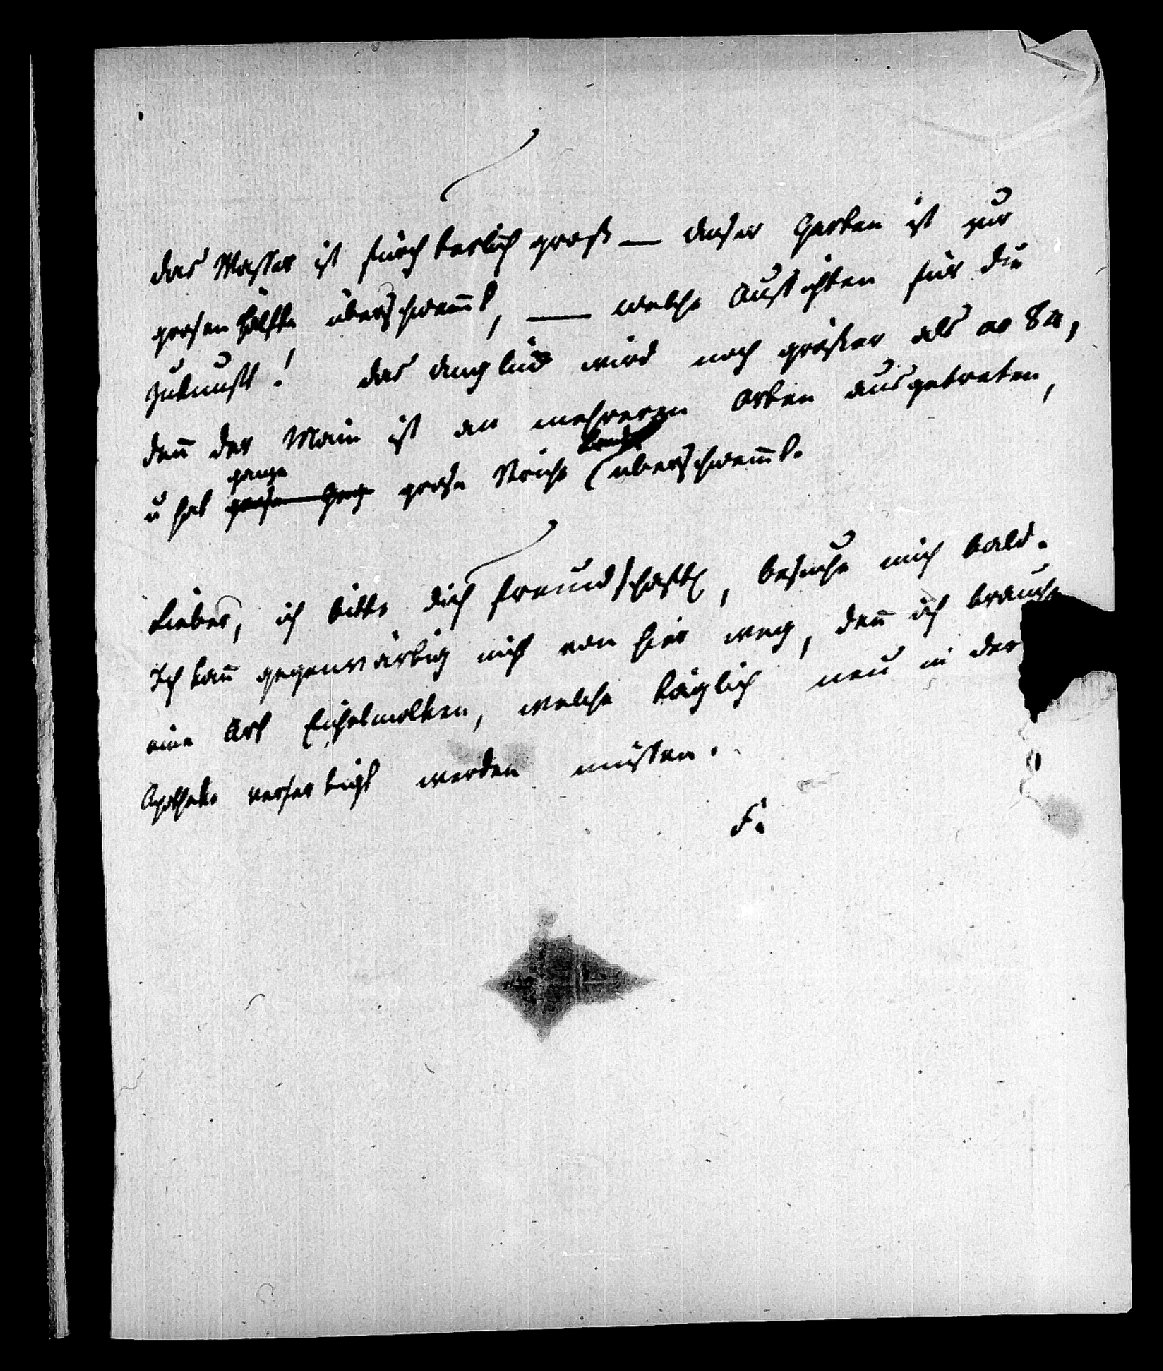 das Wasser ist fürchterlich groß — unser Garten ist zur
grosen Hälfte überschwemt, — welche Aussichten für die
Zukunft! das Unglük wird noch größer als ao 84,
den der Main ist an mehreren Orten ausgetreten,
u hat ganze grose Striche Landes überschwemt.
Lieber, ich bitte dich freundschaftl, besuche mich bald.
Ich kan gegenwärtig nicht von hier weg, den ich brauche
eine Art Eichelmolken, welche täglich neu in der
Apotheke verfertigt werden müssen.
F.